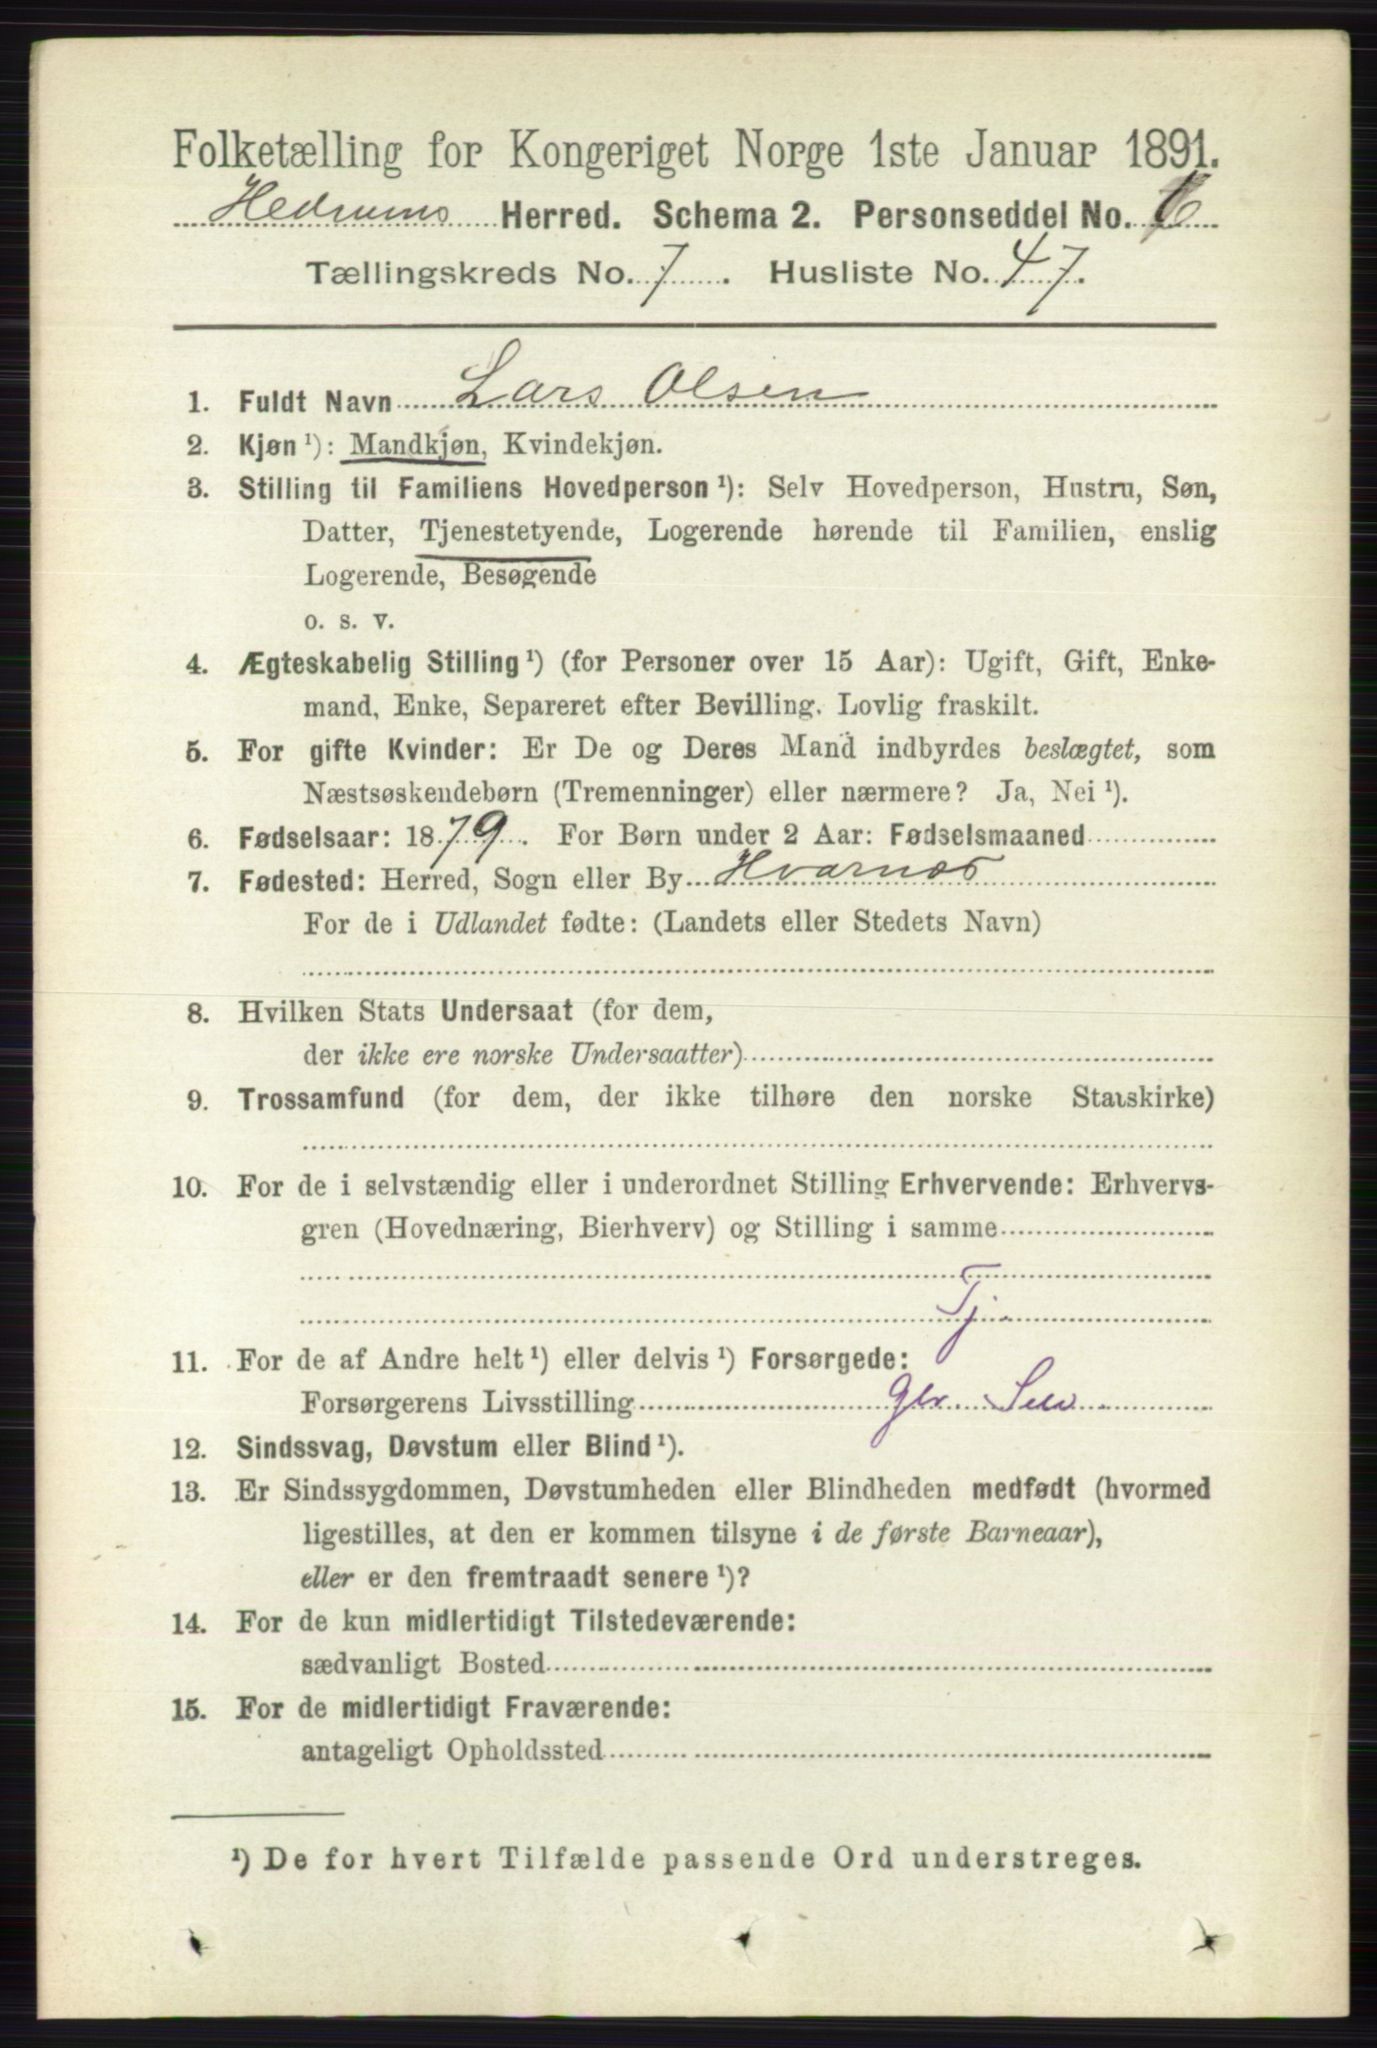 Folketælling for Kongeriget Norge 1ste Januar 1891.
Hedrums Herred. Schema 2. Personseddel No. 6
Tællingskreds No. 7. Husliste No. 47.
1. Fuldt Navn Lars Olsen
2. Kjøn ¹): Mandkjøn, Kvindekjøn.
3. Stilling til Familiens Hovedperson ¹): Selv Hovedperson, Hustru, Søn,
Datter, Tjenestetyende, Logerende hørende til Familien, enslig
Logerende, Besøgende
o. s. v.
4. Ægteskabelig Stilling ¹) (for Personer over 15 Aar): Ugift, Gift, Enke-
mand, Enke, Separeret efter Bevilling. Lovlig fraskilt.
5. For gifte Kvinder: Er De og Deres Mand indbyrdes beslægtet, som
Næstsøskendebørn (Tremenninger) eller nærmere? Ja, Nei ¹).
6. Fødselsaar: 1879. For Børn under 2 Aar: Fødselsmaaned
7. Fødested: Herred, Sogn eller By Hvarnæs
For de i Udlandet fødte: (Landets eller Stedets Navn)
8. Hvilken Stats Undersaat (for dem,
der ikke ere norske Undersaatter)
9. Trossamfund (for dem, der ikke tilhøre den norske Statskirke)
10. For de i selvstændig eller i underordnet Stilling Erhvervende: Erhvervs-
gren (Hovednæring, Bierhverv) og Stilling i samme
Tj.
11. For de af Andre helt ¹) eller delvis ¹) Forsørgede:
Forsørgerens Livsstilling
12. Sindssvag, Døvstum eller Blind ¹).
13. Er Sindssygdommen, Døvstumheden eller Blindheden medfødt (hvormed
ligestilles, at den er kommen tilsyne i de første Barneaar),
eller er den fremtraadt senere ¹)?
14. For de kun midlertidigt Tilstedeværende:
sædvanligt Bosted
15. For de midlertidigt Fraværende:
antageligt Opholdssted
¹) De for hvert Tilfælde passende Ord understreges.